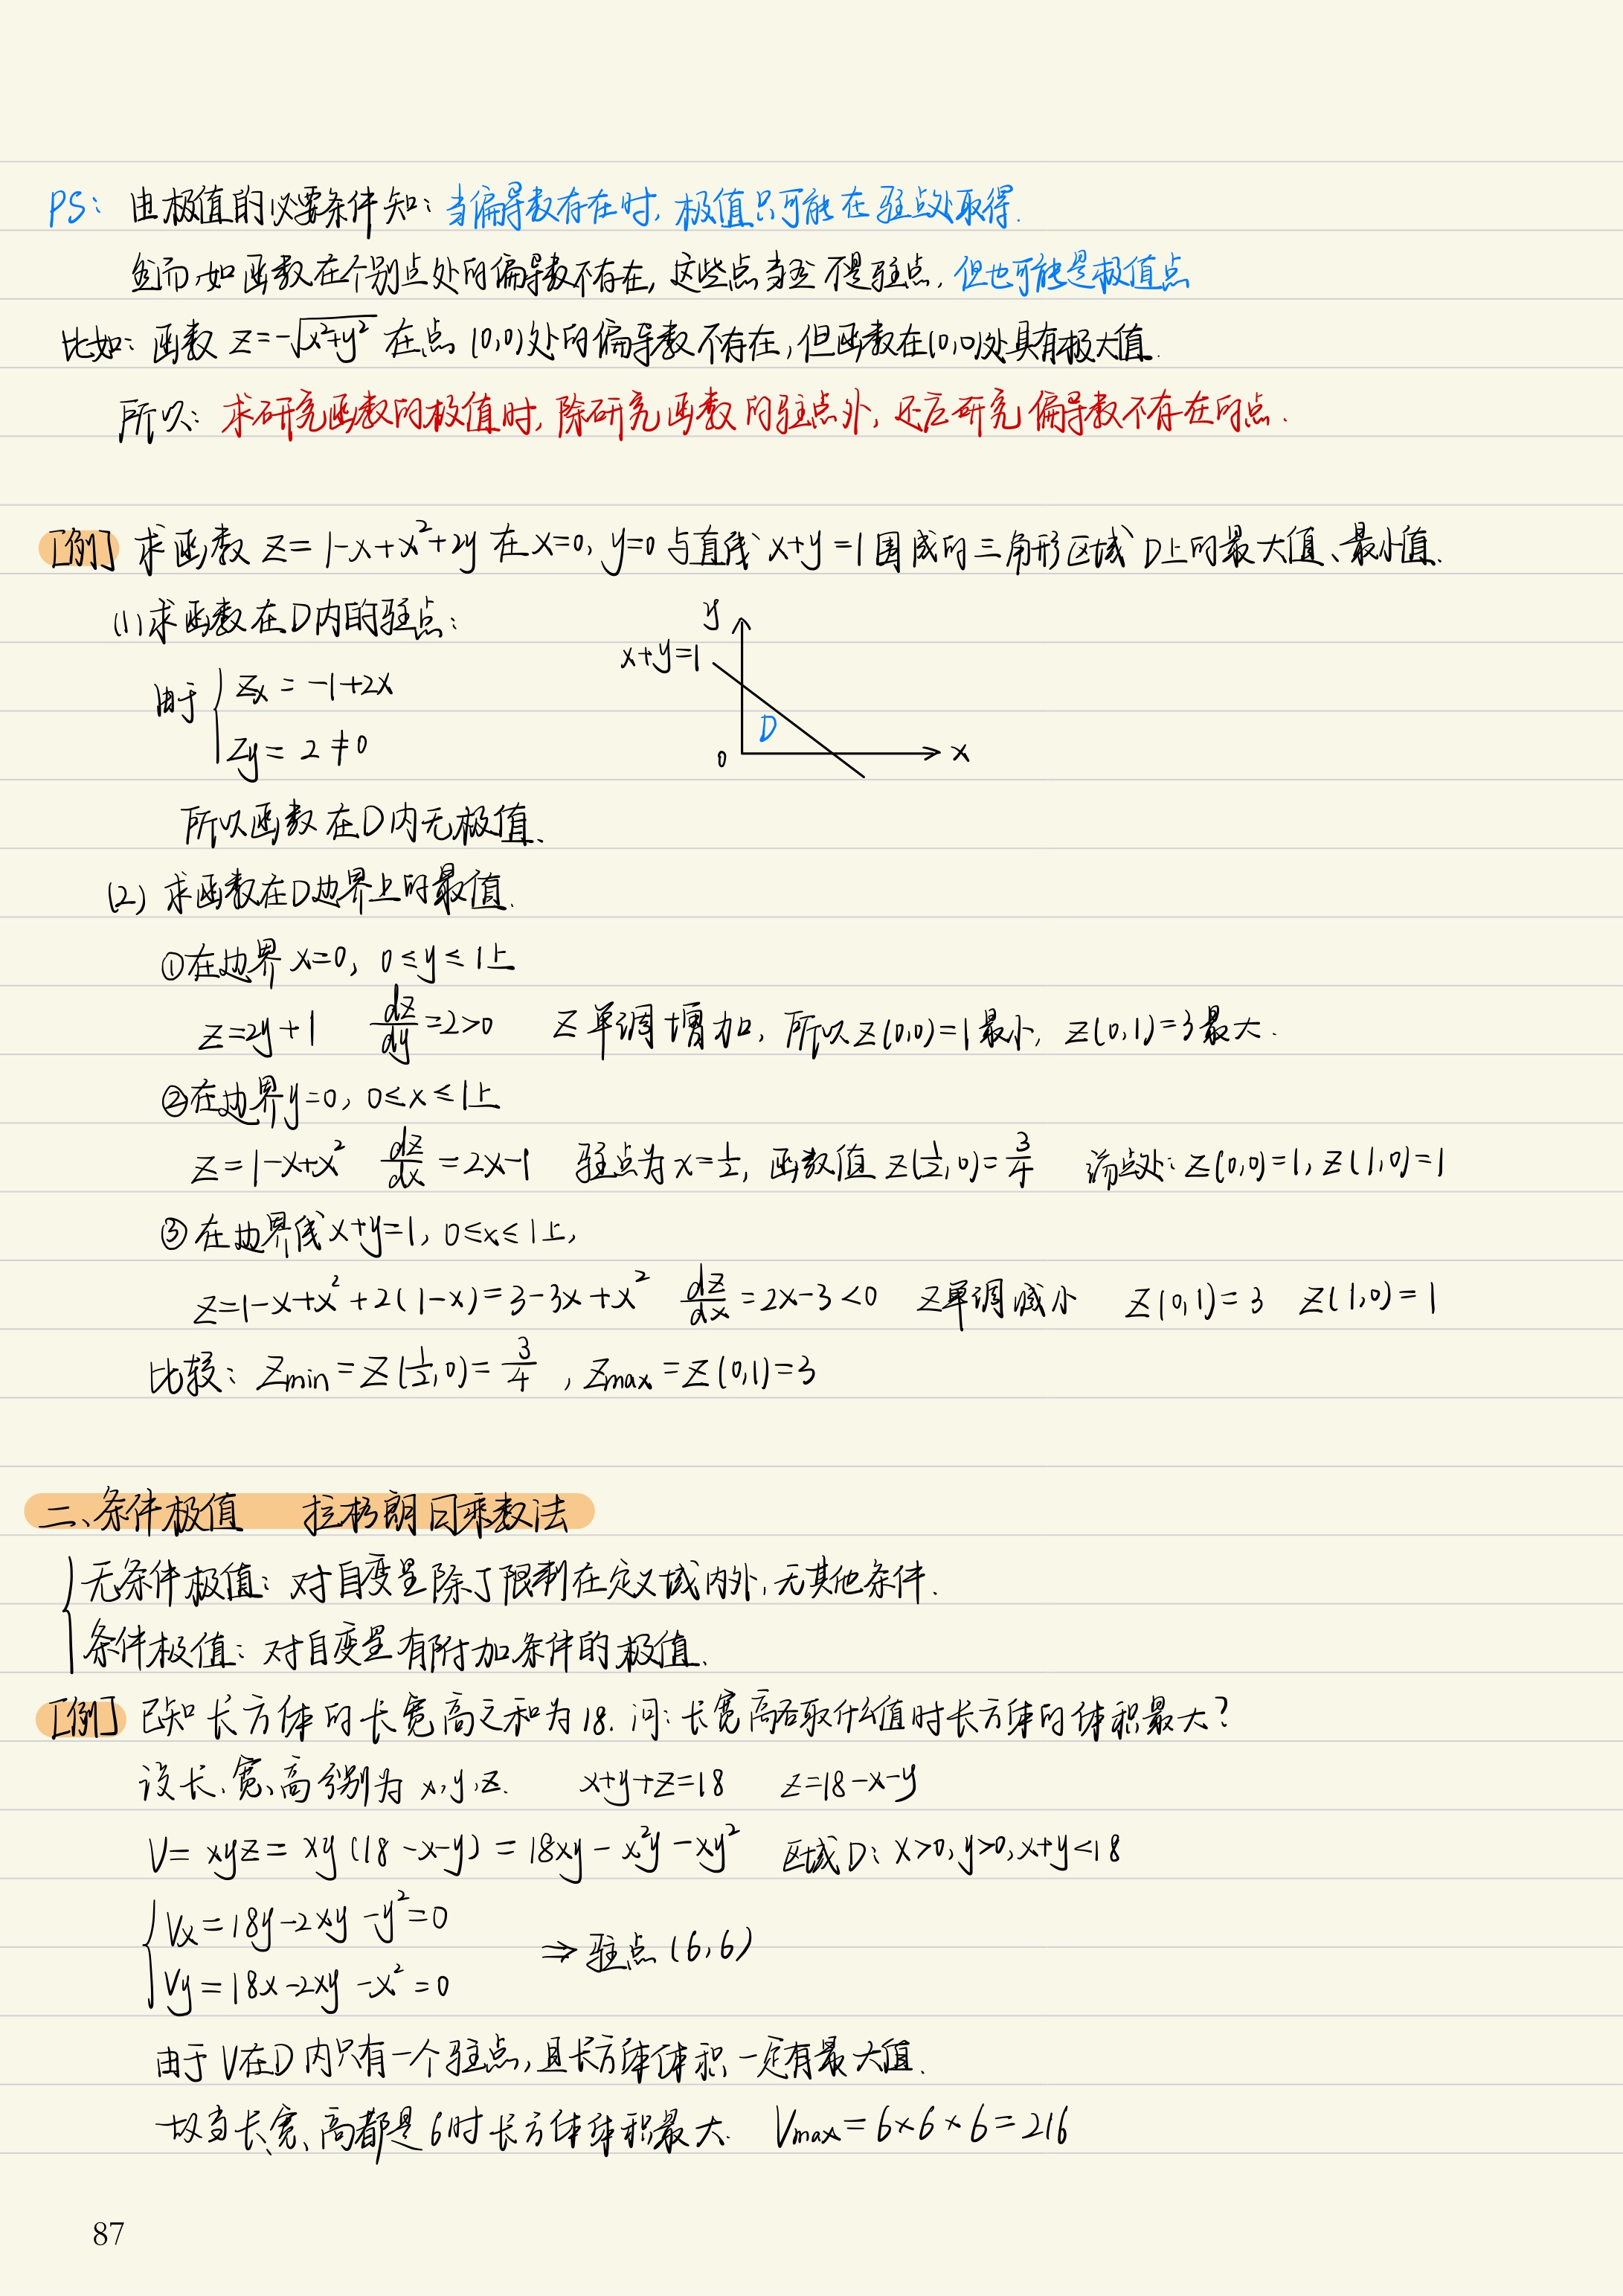 PS: 由极值的必要条件知: 当偏导数存在时, 极值只可能在驻点处取得.
然而,如函数在个别点处的偏导数不存在, 这些点当然不是驻点, 但也可能是极值点
比如: 函数 z=-√(x²+y²) 在点 (0,0)处的偏导数不存在, 但函数在(0,0)处具有极大值.
所以: 求研究函数的极值时, 除研究函数的驻点外, 还应研究偏导数不存在的点.
[例] 求函数 z=1-x+x²+2y 在 x=0, y=0 与直线 x+y=1 围成的三角形区域 D上的最大值、最小值.
(1)求函数在D内的驻点:
y
x+y=1
D
0
x
由于 { Zx = -1+2x
Zy = 2 ≠0
所以函数在D内无极值.
(2) 求函数在D边界上的最值.
①在边界 x=0, 0≤y≤1上
z=2y+1 dz/dy=2>0 z单调增加, 所以z(0,0)=1最小, z(0,1)=3最大.
②在边界y=0, 0≤x≤1上
z=1-x+x² dz/dx=2x-1 驻点为x=1/2, 函数值 z(1/2,0)=3/4 端点处: z(0,0)=1, z(1,0)=1
③在边界线x+y=1, 0≤x≤1上,
z=1-x+x²+2(1-x)=3-3x+x² dz/dx=2x-3<0 z单调减小 z(0,1)=3 z(1,0)=1
比较: Zmin=Z(1/2,0)=3/4 , Zmax=Z(0,1)=3
二、条件极值 拉格朗日乘数法
{ 无条件极值: 对自变量除了限制在定义域内外, 无其他条件.
条件极值: 对自变量有附加条件的极值.
[例] 已知长方体的长宽高之和为18. 问: 长宽高各取什么值时长方体的体积最大?
设长、宽、高分别为 x,y,z. x+y+z=18 z=18-x-y
V= xyz= xy(18-x-y) = 18xy-x²y-xy² 区域D: x>0,y>0,x+y<18
{ Vx=18y-2xy-y²=0
Vy=18x-2xy-x²=0
⇒驻点(6,6)
由于V在D内只有一个驻点,且长方体体积一定有最大值.
故当长、宽、高都是6时长方体体积最大. Vmax=6×6×6=216
87